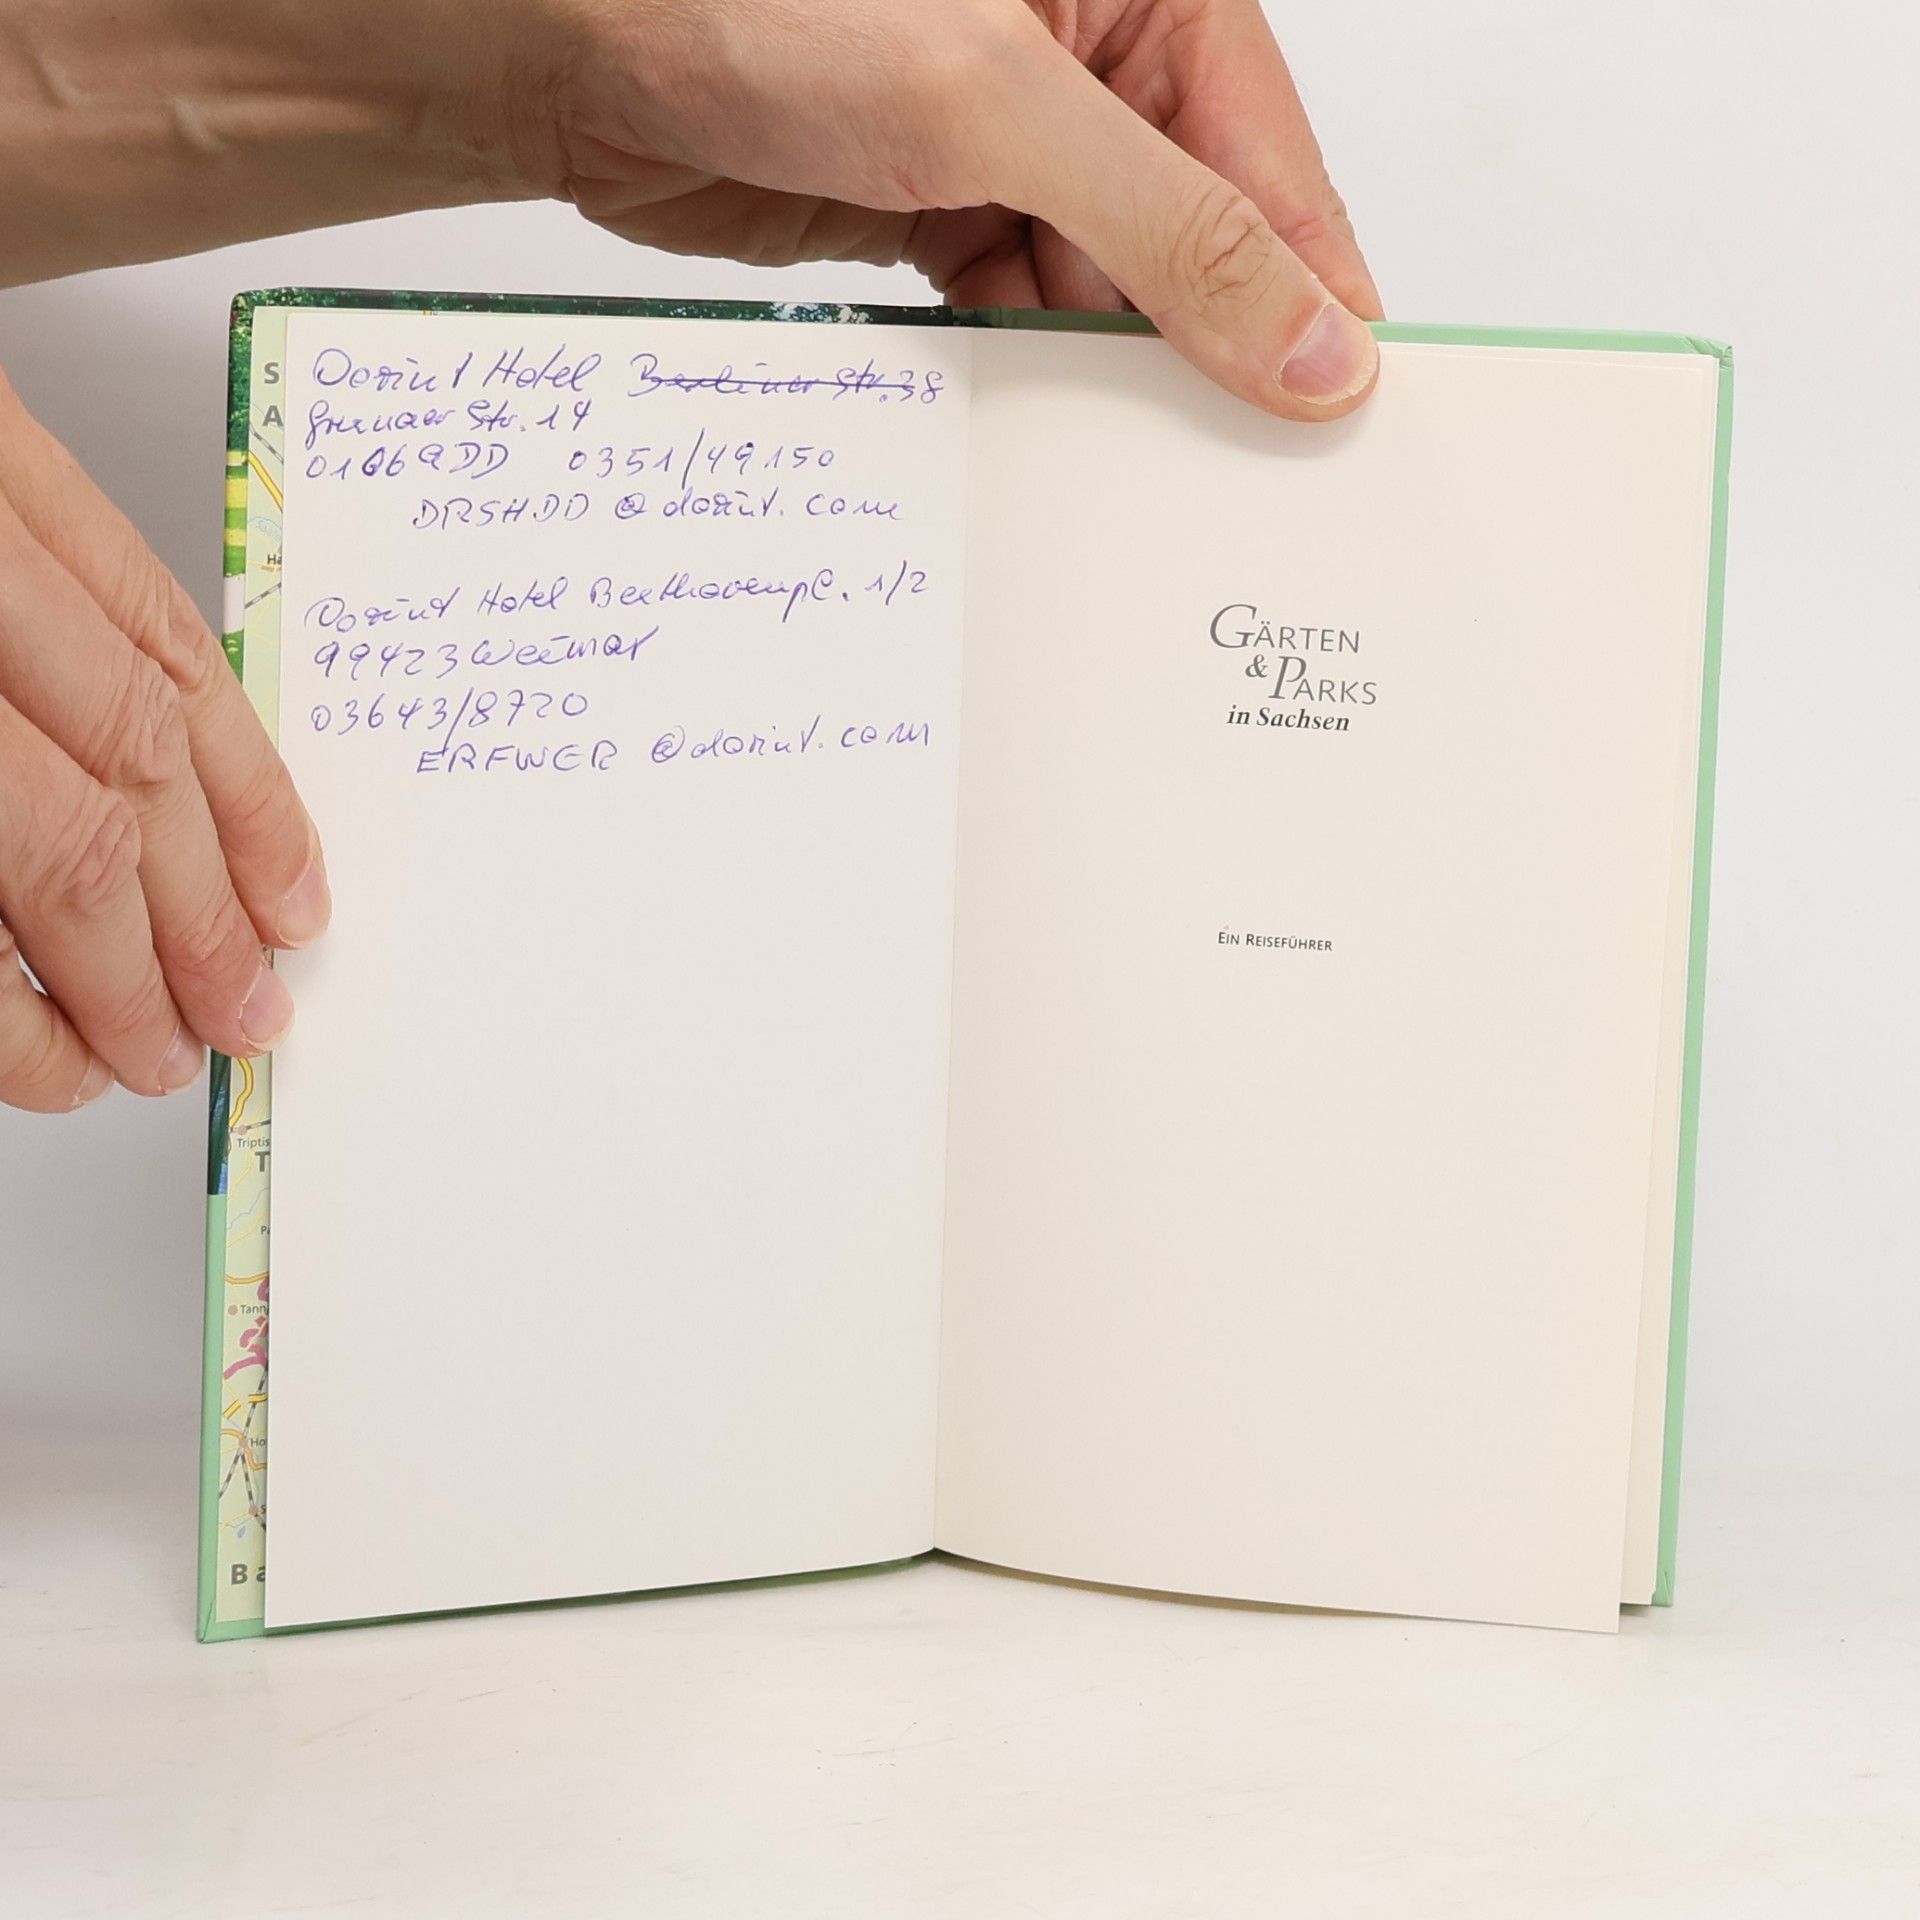 Dorint Hotel Berliner Str. 38
Grunaer Str. 14
01069 DD 0351/49150
DRSHDD @dorint.com
Dorint Hotel Beethovenpl. 1/2
99423 Weimar
03643/8720
ERFWER @dorint.com
GÄRTEN
& PARKS
in Sachsen
EIN REISEFÜHRER
S
A
Triptis
T
Tann
Ho